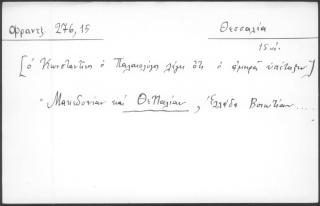 Φραντζ. 276,15 Θεσσαλία
15 αἰ.
[ὁ Κωνσταντῖνος ὁ Παλαιολόγος λέγει ὅτι ὁ ἀμηρᾶ ὑπέταξεν]
" Μακεδονίαν καὶ Θετταλίαν, Ἑλλάδα Βοιωτίαν.....